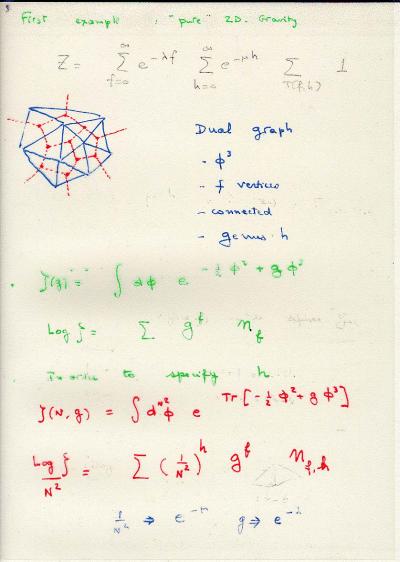 First example : "pure" 2D. Gravity
Z = ∑_{f=0}^{∞} e^{-λf} ∑_{h=0}^{∞} e^{-μh} ∑_{T(f,h)} 1
Dual graph
- ϕ³
- f vertices
- connected
- genus h
ζ(g) = ∫ dϕ e^{-½ϕ² + gϕ³}
Log ζ = ∑ g^f n_f
In order to specify h.
ζ(N,g) = ∫ d^{N²}ϕ e^{Tr[-½ϕ² + gϕ³]}
Log ζ / N² = ∑ (1/N²)^h g^f n_{f,h}
1/N² ⇒ e^{-μ} g ⇒ e^{-λ}